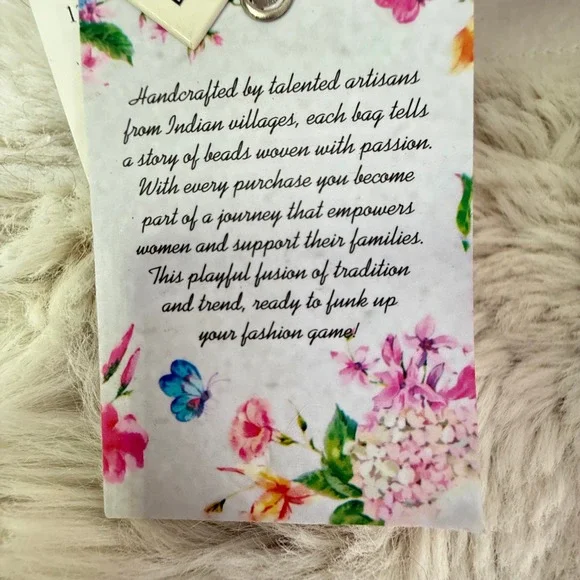 Handcrafted by talented artisans
from Indian villages, each bag tells
a story of beads woven with passion.
With every purchase you become
part of a journey that empowers
women and support their families.
This playful fusion of tradition
and trend, ready to funk up
your fashion game!